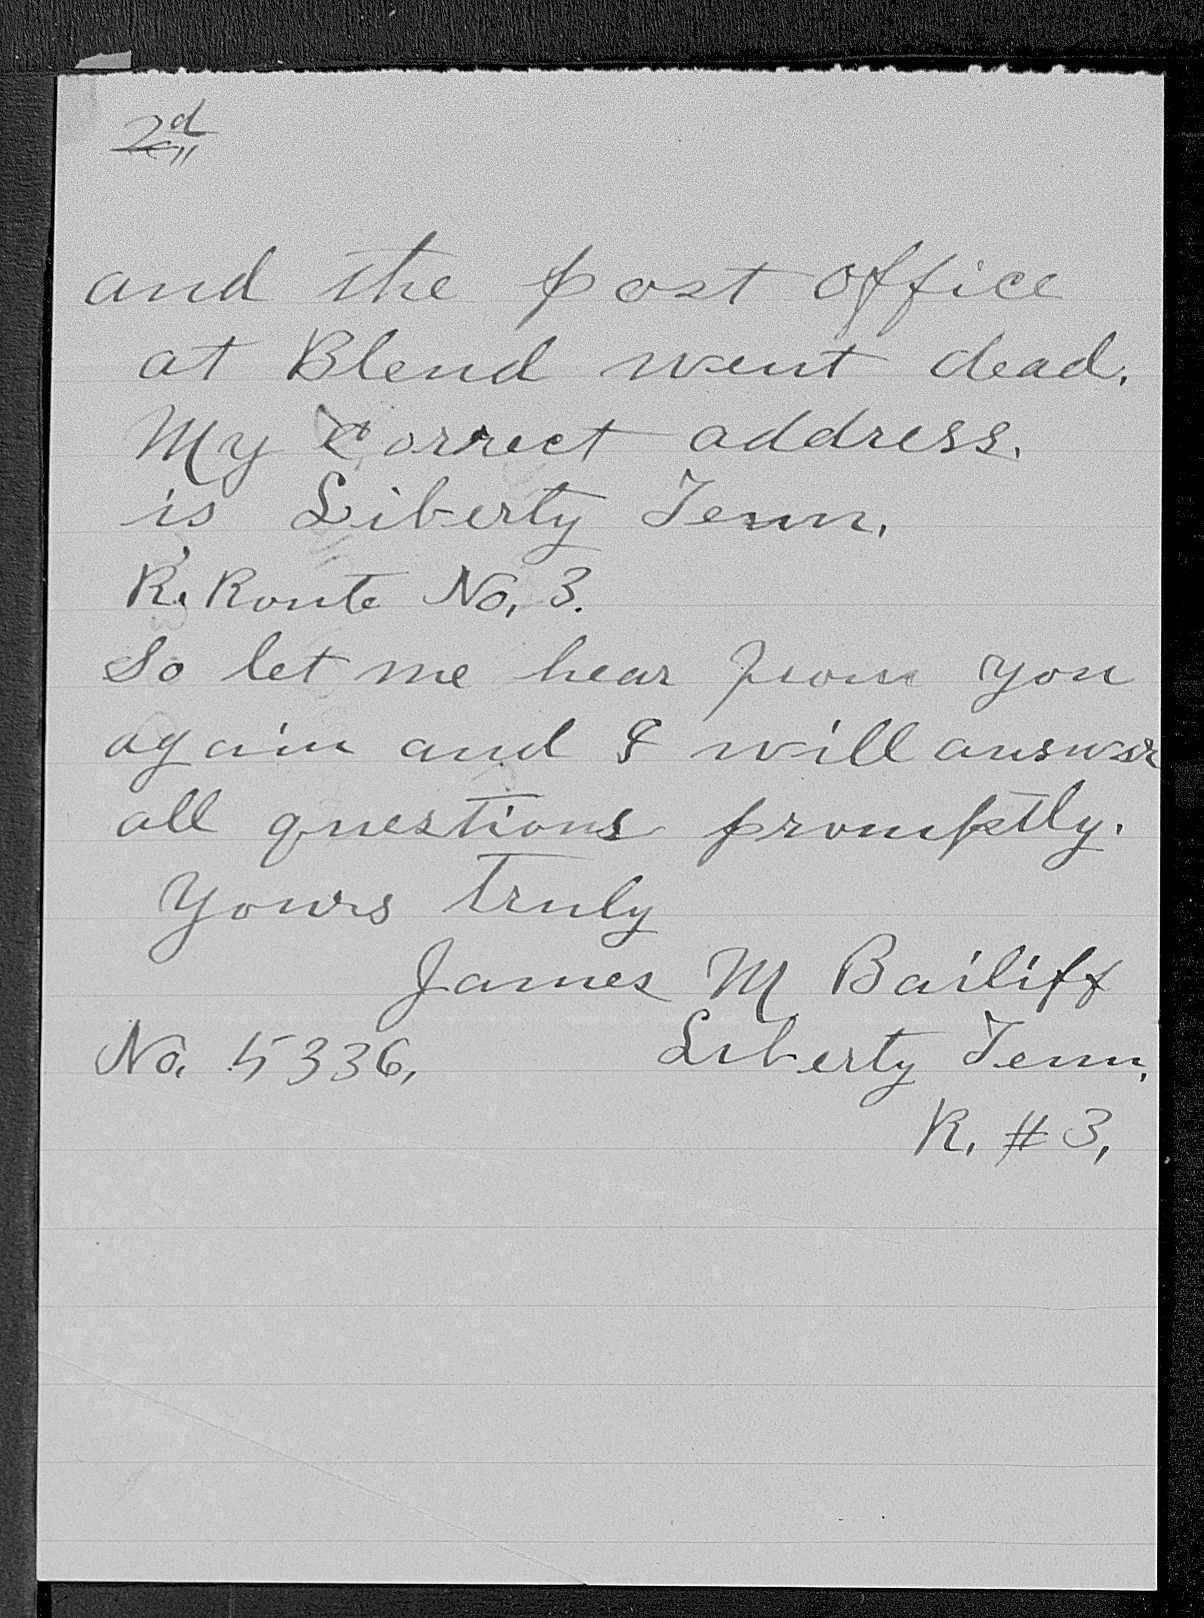 2d
and the post office
at Blend went dead.
My Correct address.
is Liberty Tenn,
R. Route No, 3.
So let me hear from you
again and I will answer
all questions promptly.
Yours truly
James M Bailiff
No. 5336, Liberty Tenn,
R. # 3,